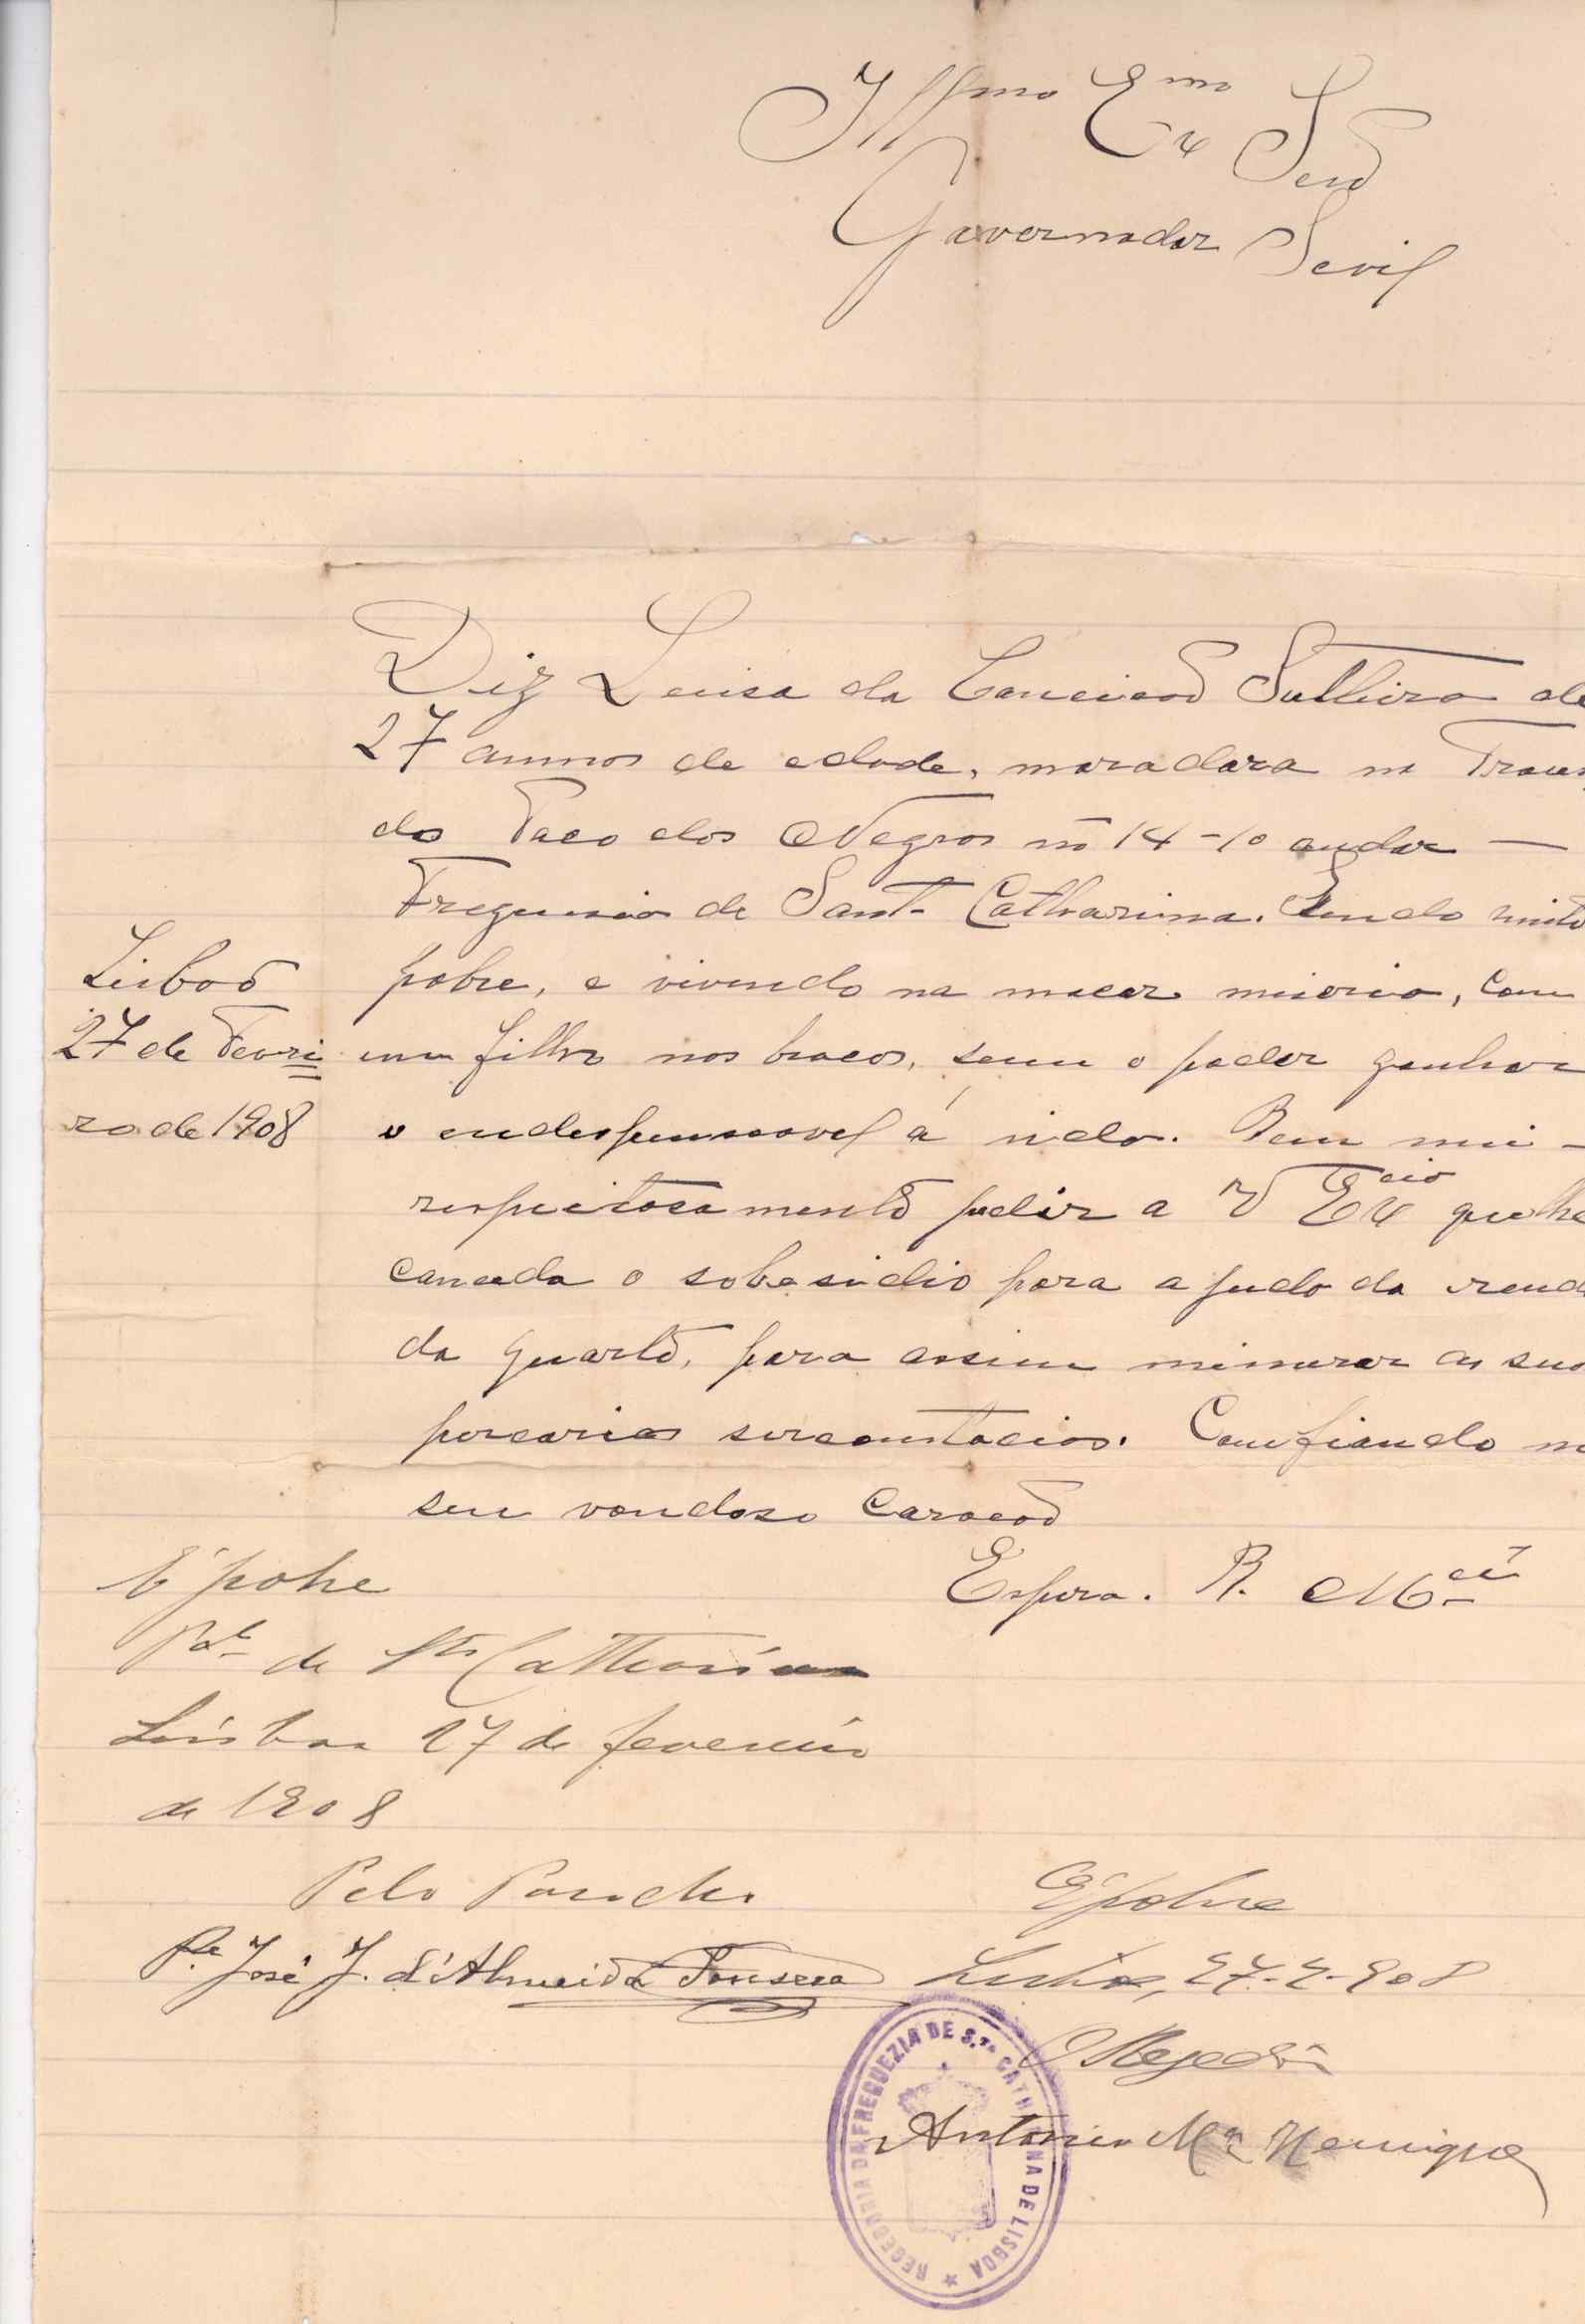 Illmo Exmo Snr
Governador Sevil
Diz Luisa da Conceicaõ Sulteira de
27 annos de edade, moradora na Traves
do Paco dos Negros nº 14-1º andar —
Freguesia de Santa Catharina. Sendo muito
pobre, e vivendo na maear miseria, com
um filho nos bracos, sem o poder ganhar
o endespensavel á vida. Bem mui-
respeitosamente pedir a V Excia que lhe
conceda o sobesidio para ajuda da renda
da quarto, para assim minurar as suas
porcarias sircunstacias. Confiando no
seu vondoso Caracaõ
Espera. R. Mcê
Lisboa
27 de Fevri=
ro de 1908
É pobre
Pal de Sta Catharina
Lisboa 27 de fevereiro
de 1908
Pelo Parocho
Pe José J. d'Almeida Fonseca
É pobre
Lisboa, 27-2-908
O Regedor
Antonio Ma Henriques
REGEDORIA DA FREGUEZIA DE S.TA CATHARINA DE LISBOA